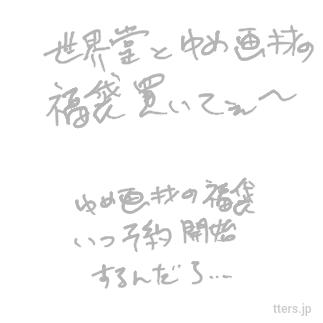 世界堂とゆめ画材の
福袋買いてぇ〜
ゆめ画材の福袋
いつ予約開始
するんだろ...
tters.jp